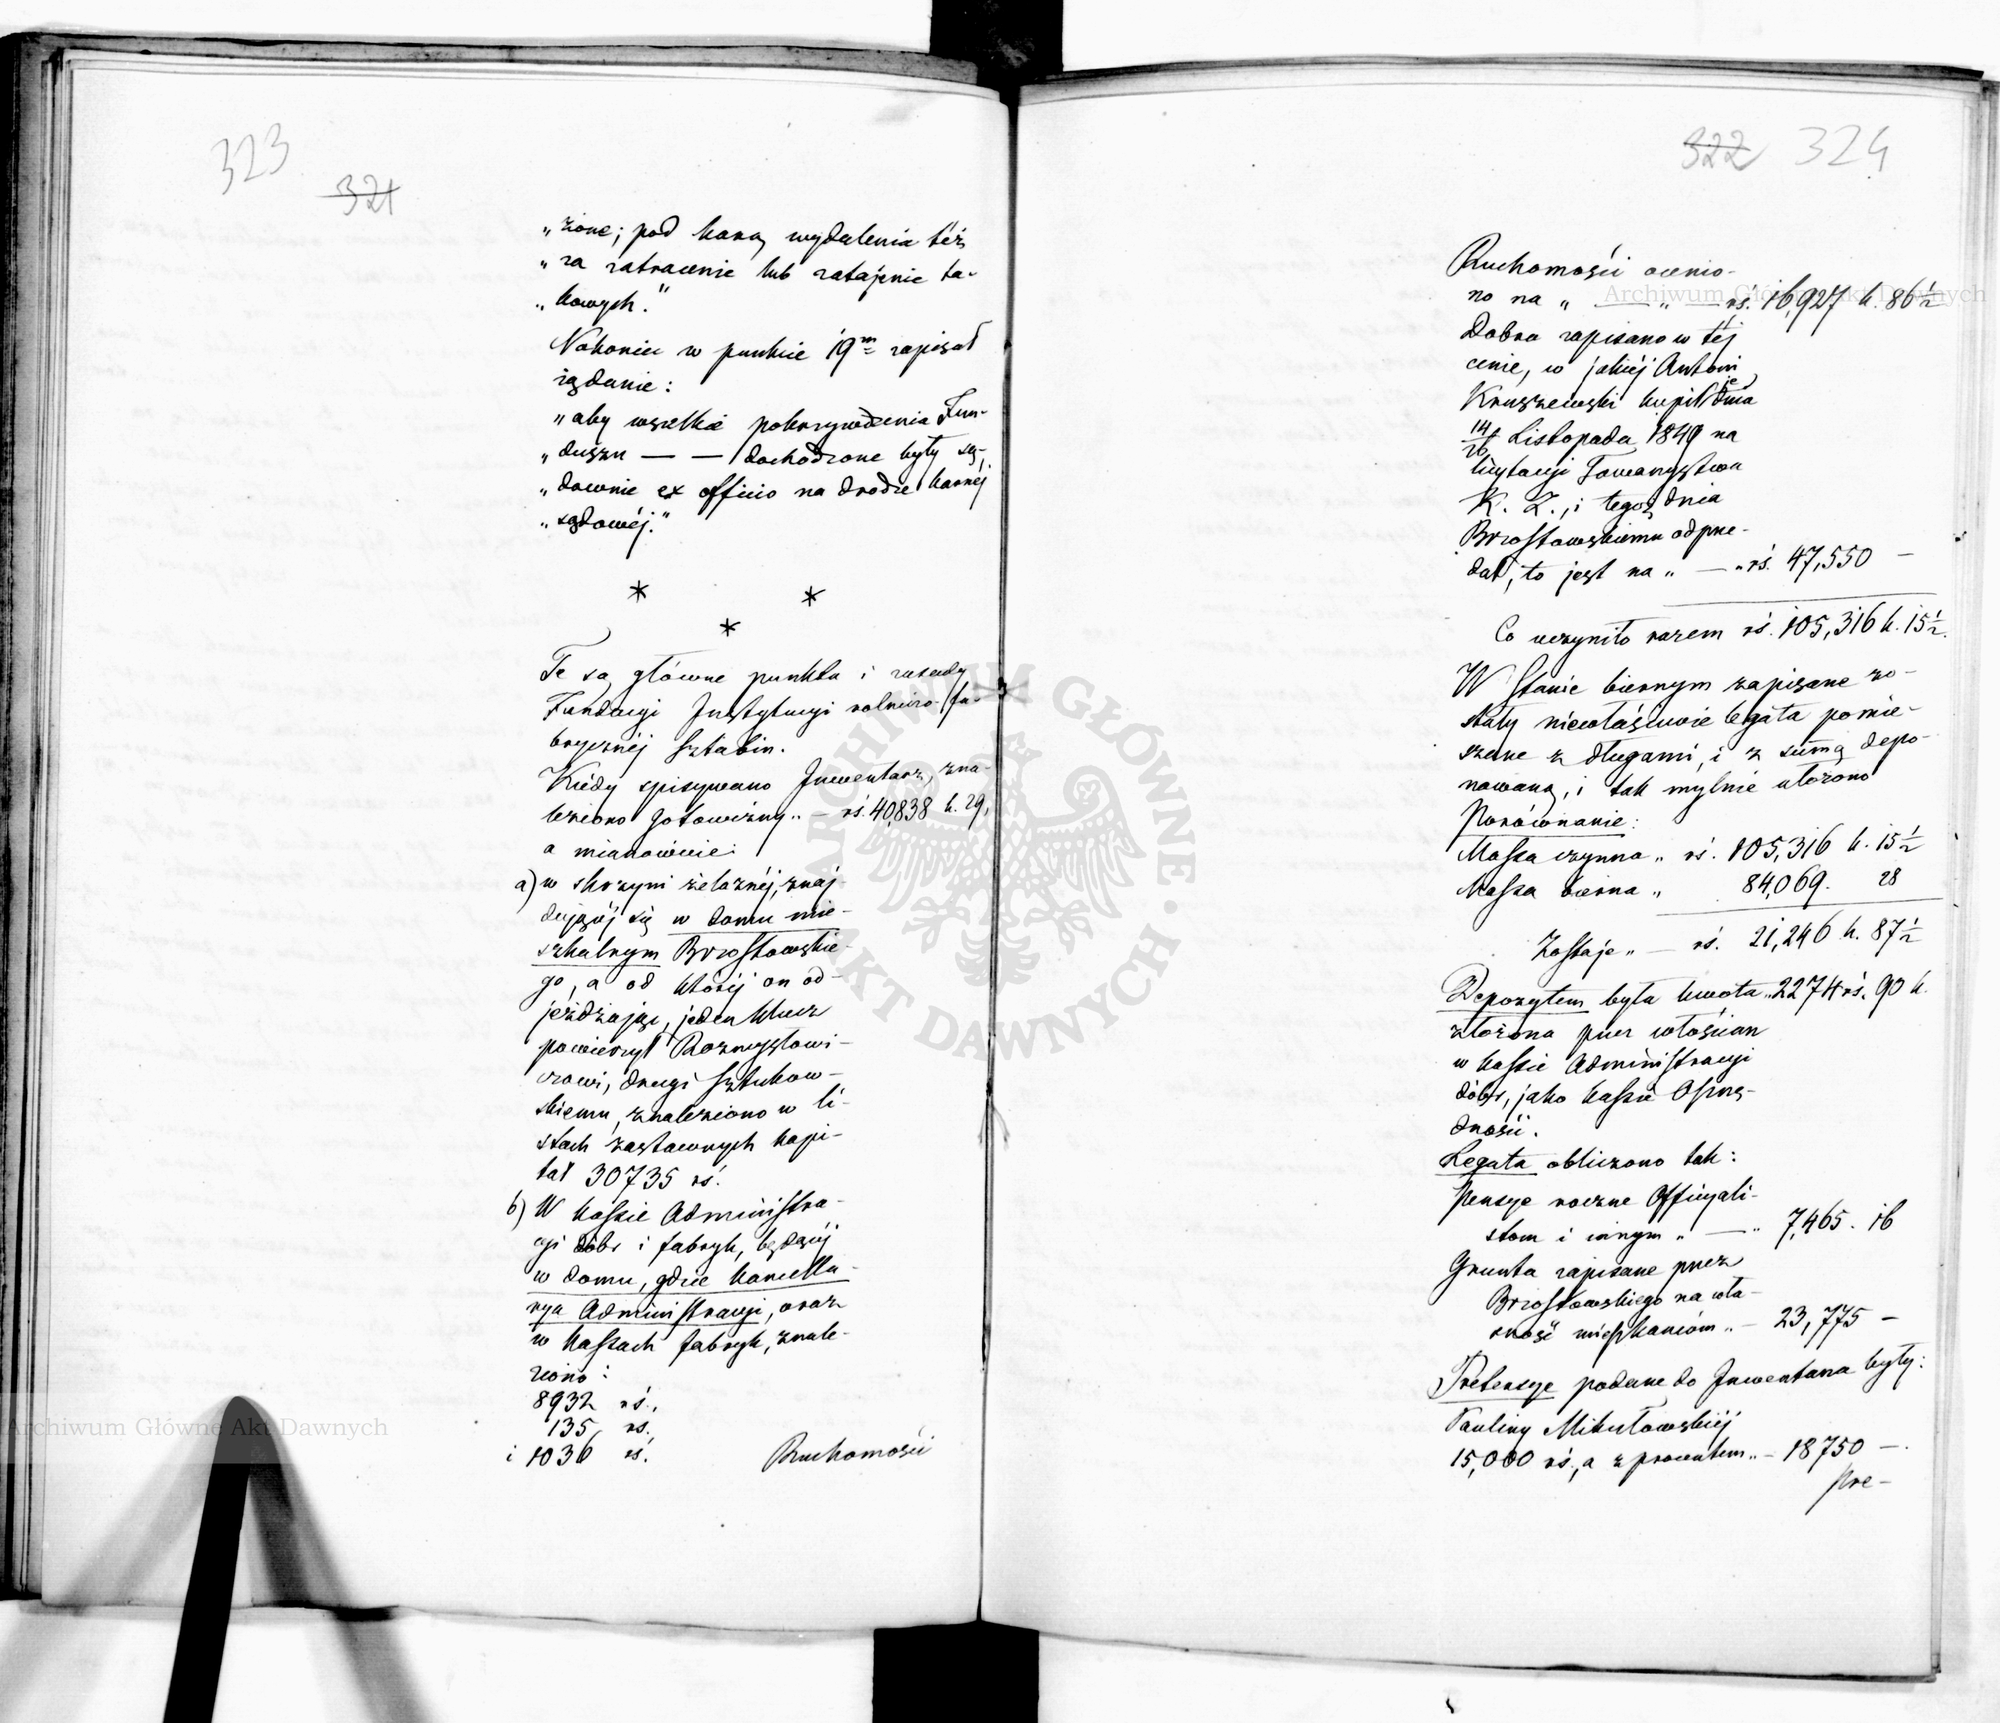 323
321
„żone; pod karą wydalenia téż
„za zatracenie lub zatajenie ta-
„kowych."
Nakoniec w punkcie 19m zapisał
żądanie:
„aby wszelkie pokrzywdzenia Fun-
„duszu — — dochodzone były są-
„downie ex officio na drodze karnéj
„sądowéj."
* *
*
Te są główne punkta i zasady
Fundacyi Instytucyi rolniczo-fa-
brycznéj Sztabin.
Kiedy spisywano Inwentarz, zna-
leziono gotowizny „ — rś. 40,838 k. 29,
a mianowicie:
a) w skrzyni żelaznéj, znaj-
dującéj się w domu mie-
szkalnym Brzostowskie-
go, a od któréj on od-
jeżdżając, jeden klucz
powierzył Rozmysłowi-
czowi, drugi Sztukow-
skiemu, znaleziono w li-
stach zastawnych kapi-
tał 30735 rś.
b) W kassie Administra-
cyi dóbr i fabryk, będącéj
w domu, gdzie kancella-
rya Administracyi, oraz
w kassach fabryk, znale-
ziono:
8932 rś.,
135, rs.,
i 1036 rś.
Ruchomości
322 324
Ruchomości ocenio-
no na „ — „ — rś. 16,927 k. 86½
Dobra zapisano w téj
cenie, w jakiéj Antoni
Kruszewski kupił je dnia
14/26 Listopada 1849 na
licytacyi Towarzystwa
K. Z., i tegoż dnia
Brzostowskiemu odprze-
dał, to jest na „ — „ rś. 47,550 —
Co uczyniło razem rś. 105,316 k. 15½.
W Stanie biernym zapisane zo-
stały niewłaściwie legata pomie-
szane z długami, i z summą depo-
nowaną, i tak mylnie ułożono
Porównanie:
Massa czynna „ rś. 105,316 k. 15½
Massa bierna „ 84,069. 28
Zostaje „ — rś. 21,246 k. 87½
Depozytem była kwota „ 2274 rś. 90 k.
złożona przez włościan
w kassie Administracyi
dóbr, jako kassie Oszczę-
dności.
Legata obliczono tak:
Pensye roczne Officyali-
stom i innym „ — „ 7,465. 16
Grunta zapisane przez
Brzostowskiego na wła-
sność mieszkańców „ — 23,775 —
Pretensye podane do Inwentarza były:
Pauliny Mikułowskiéj
15,000 rś., a z procentem „ — 18750 —.
Pre-
Archiwum Główne Akt Dawnych
Archiwum Główne Akt Dawnych
ARCHIWUM GŁÓWNE AKT DAWNYCH